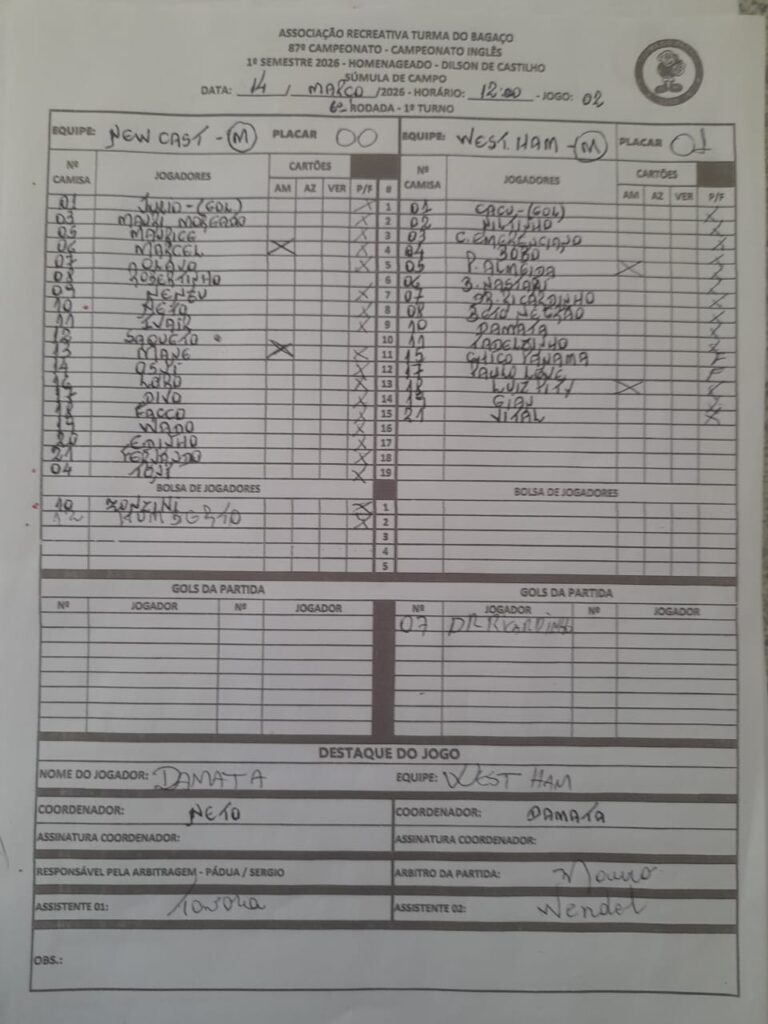 ASSOCIAÇÃO RECREATIVA TURMA DO BAGAÇO
87º CAMPEONATO - CAMPEONATO INGLÊS
1º SEMESTRE 2026 - HOMENAGEADO - DILSON DE CASTILHO
SÚMULA DE CAMPO
DATA: 14 / MARÇO /2026 - HORÁRIO: 12:00 - JOGO: 02
6ª RODADA - 1º TURNO
EQUIPE: NEW CAST - (M) PLACAR 00 EQUIPE: WEST. HAM - (M) PLACAR 01
Nº CAMISA JOGADORES CARTÕES Nº CAMISA JOGADORES CARTÕES
AM AZ VER P/F # AM AZ VER P/F
01 JULIO - (GOL) X 1 01 CACU - (GOL) X
03 MAURI MORGADO X 2 02 NILTINHO X
05 MAURICE X 3 03 C. EMERENCIANO X
06 MARCEL X X 4 04 BOBÔ X
07 OLAVO X 5 05 P. ALMEIDA X X
08 ROBERTINHO 6 06 B. NASTARI X
09 NENEU X 7 07 DR. RICARDINHO X
10 NETO X 8 08 BETO NEGRÃO X
11 IVAIR X 9 10 DAMATA X
12 SAQUETO 10 11 X
13 MANE X X 11 15 CHICO PANAMA F
14 OSNI X 12 17 PAULO LOVE F
16 LOBO X 13 18 LUIZ PITY X X
17 DIVO X 14 19 GIAN X
18 FACCO X 15 21 VITAL X
19 WADO X 16
20 EDINHO X 17
21 FERNANDO X 18
04 TONI X 19
BOLSA DE JOGADORES BOLSA DE JOGADORES
10 ZONZINI X 1
12 HUMBERTO X 2
3
4
5
GOLS DA PARTIDA GOLS DA PARTIDA
Nº JOGADOR Nº JOGADOR Nº JOGADOR Nº JOGADOR
07 DR RICARDINHO
DESTAQUE DO JOGO
NOME DO JOGADOR: DAMATA EQUIPE: WEST HAM
COORDENADOR: NETO COORDENADOR: DAMATA
ASSINATURA COORDENADOR: ASSINATURA COORDENADOR:
RESPONSÁVEL PELA ARBITRAGEM - PÁDUA / SERGIO ARBITRO DA PARTIDA: Mauro
ASSISTENTE 01: ASSISTENTE 02: Wendel
OBS.: